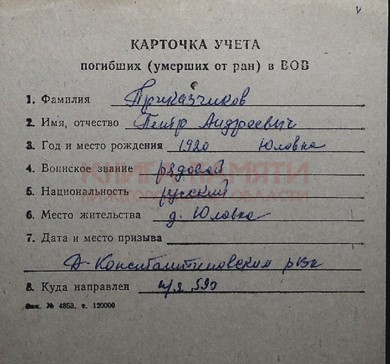 КАРТОЧКА УЧЕТА
погибших (умерших от ран) в ВОВ
1. Фамилия Приказчиков
2. Имя, отчество Петр Андреевич
3. Год и место рождения 1920 Юловка
4. Воинское звание рядовой
КНИГА ПАМЯТИ
5. Национальность русский
6. Место жительства д. Юловка
7. Дата и место призыва
Д-Константиновским рвк
8. Куда направлен п/я 590
Зак. № 4853, т. 120000